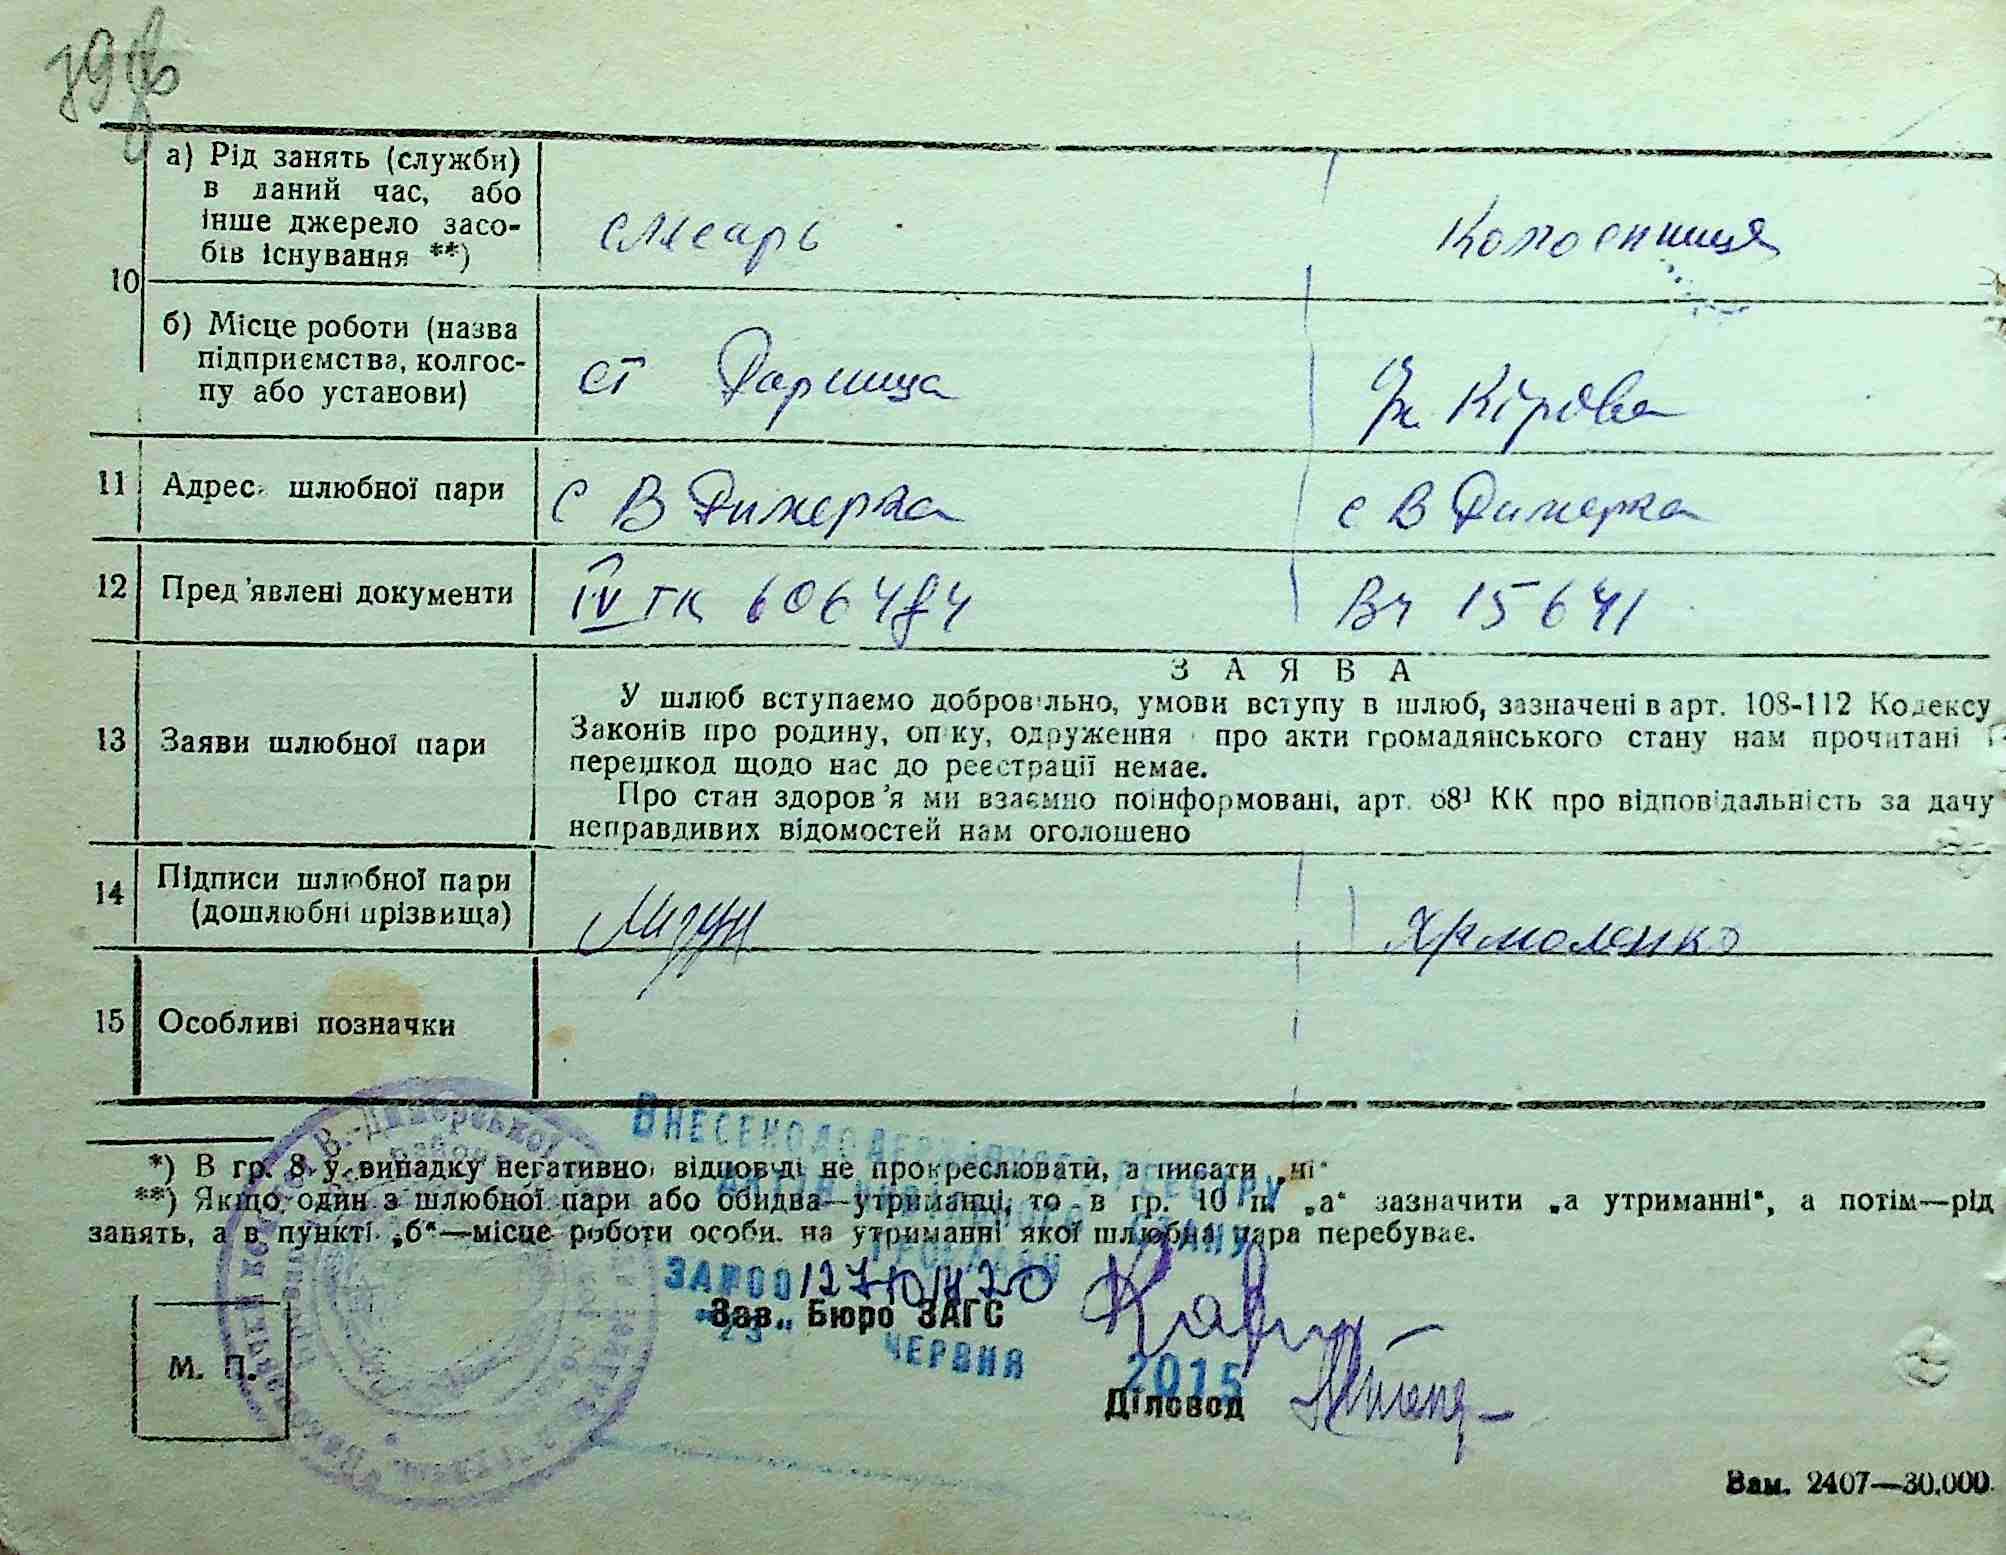 а) Рід занять (служби)
в даний час, або
інше джерело засо-
бів існування **)
слюсарь
10
б) Місце роботи (назва
підприємства, колгос-
пу або установи)
ст Дарниця
Кірова
11 Адрес шлюбної пари
с В Димерка
с В Димерка
12 Пред'явлені документи
IV ТК 606484
Вч 15641
З А Я В А
13 Заяви шлюбної пари
У шлюб вступаємо добровільно, умови вступу в шлюб, зазначені в арт. 108-112 Кодексу
Законів про родину, опіку, одруження і про акти громадянського стану нам прочитані і
перешкод щодо нас до реєстрації немає.
Про стан здоров'я ми взаємно поінформовані, арт. 68¹ КК про відповідальність за дачу
неправдивих відомостей нам оголошено
14 Підписи шлюбної пари
(дошлюбні прізвища)
Ярмоленко
15 Особливі позначки
*) В гр. 8 у випадку негативної відповіді не прокреслювати, а писати „ні“
**) Якщо один з шлюбної пари або обидва—утриманці, то в гр. 10 п. „а“ зазначити „а утриманні“, а потім—рід
занять, а в пункті „б“—місце роботи особи, на утриманні якої шлюбна пара перебуває.
ВНЕСЕНО ДО ДЕРЖАВНОГО РЕЄСТРУ
АКТІВ ЦИВІЛЬНОГО СТАНУ
ГРОМАДЯН
ЗА №00
Зав. Бюро ЗАГС
"23" ЧЕРВНЯ 2015
М. П.
Діловод
Зам. 2407—30.000.